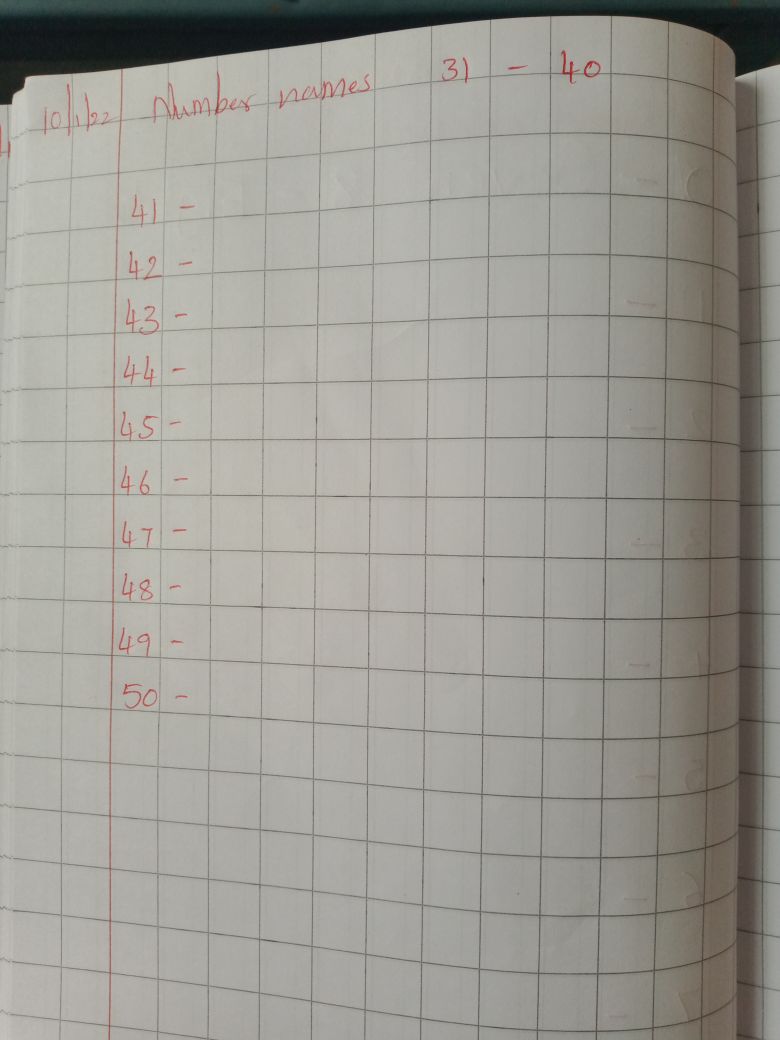 10/1/22 Number names 31 - 40
41 -
42 -
43 -
44 -
45 -
46 -
47 -
48 -
49 -
50 -